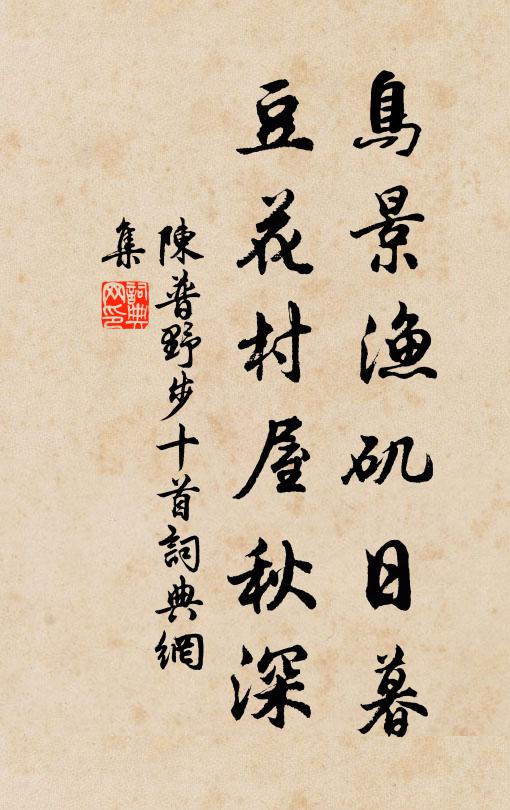 鳥景渔矶日暮
豆花村屋秋深
陳普野步十首詞典網
集
詞典
网印